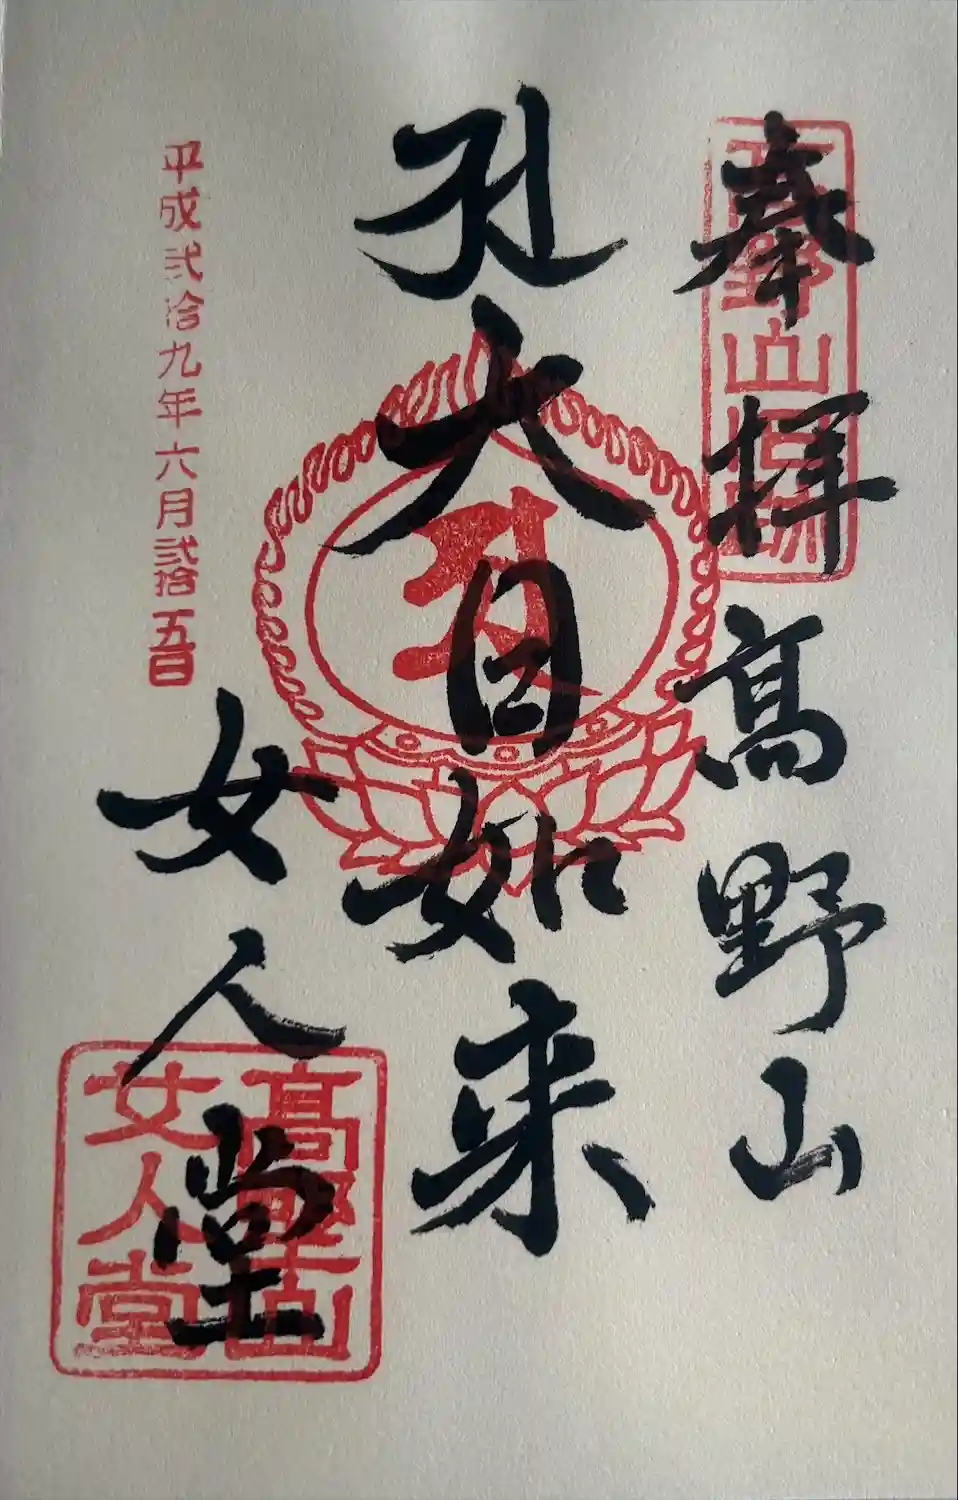 奉拝 高野山
高野山旧跡
大日如来
女人堂
高野山
女人堂
平成弐拾九年六月弐拾五日